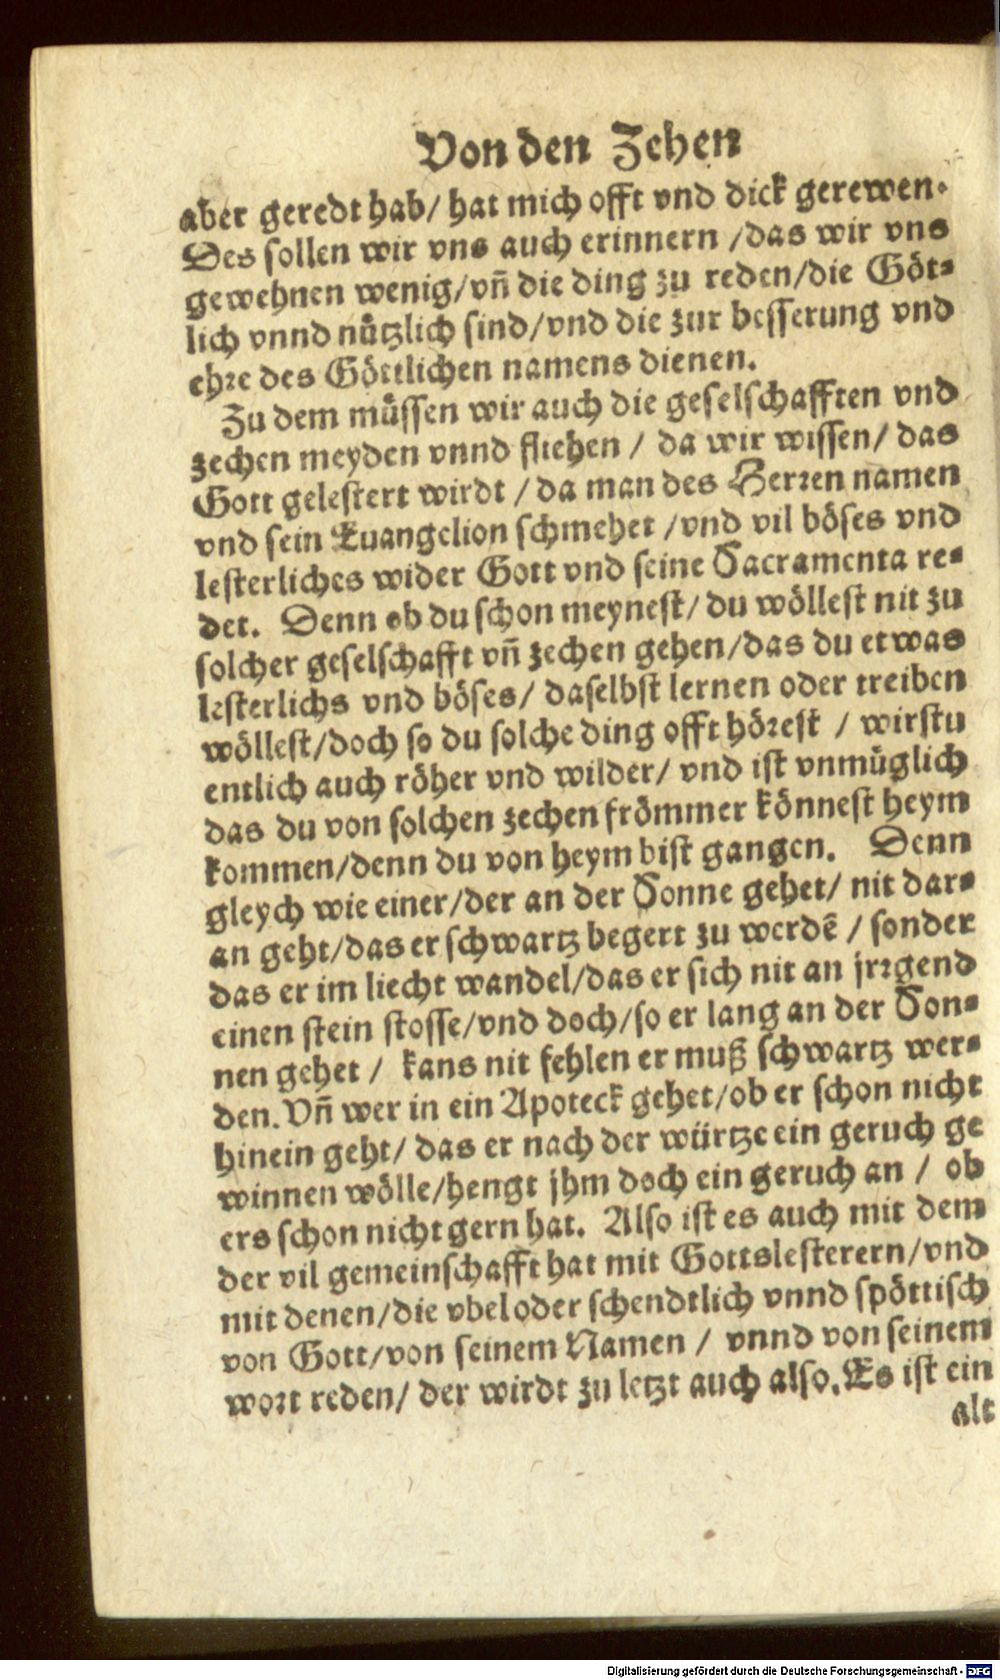 Von den Zehen
aber geredt hab/ hat mich offt vnd dick gerewen.
Des sollen wir vns auch erinnern /das wir vns
gewehnen wenig/vñ die ding zu reden/die Göt-
lich vnnd nützlich sind/vnd die zur besserung vnd
ehre des Göttlichen namens dienen.
Zu dem müssen wir auch die geselschafften vnd
zechen meyden vnnd fliehen / da wir wissen/ das
Gott gelestert wirdt /da man des Herren namen
vnd sein Euangelion schmehet /vnd vil böses vnd
lesterliches wider Gott vnd seine Sacramenta re-
det. Denn ob du schon meynest/ du wöllest nit zu
solcher geselschafft vñ zechen gehen/das du etwas
lesterlichs vnd böses/ daselbst lernen oder treiben
wöllest/doch so du solche ding offt hörest / wirstu
entlich auch röher vnd wilder/ vnd ist vnmüglich
das du von solchen zechen frömmer könnest heym
kommen/denn du von heym bist gangen. Denn
gleych wie einer/der an der Sonne gehet/ nit dar-
an geht/das er schwartz begert zu werdē / sonder
das er im liecht wandel/das er sich nit an jrrgend
einen stein stosse/vnd doch/so er lang an der Son-
nen gehet / kans nit fehlen er muß schwartz wer-
den. Vñ wer in ein Apoteck gehet/ob er schon nicht
hinein geht/ das er nach der würtze ein geruch ge
winnen wölle/hengt jhm doch ein geruch an / ob
ers schon nicht gern hat. Also ist es auch mit dem
der vil gemeinschafft hat mit Gottslesterern/vnd
mit denen/die vbel oder schendtlich vnnd spöttisch
von Gott/von seinem Namen / vnnd von seinem
wort reden/ der wirdt zu letzt auch also. Es ist ein
alt
Digitalisierung gefördert durch die Deutsche Forschungsgemeinschaft - DFG